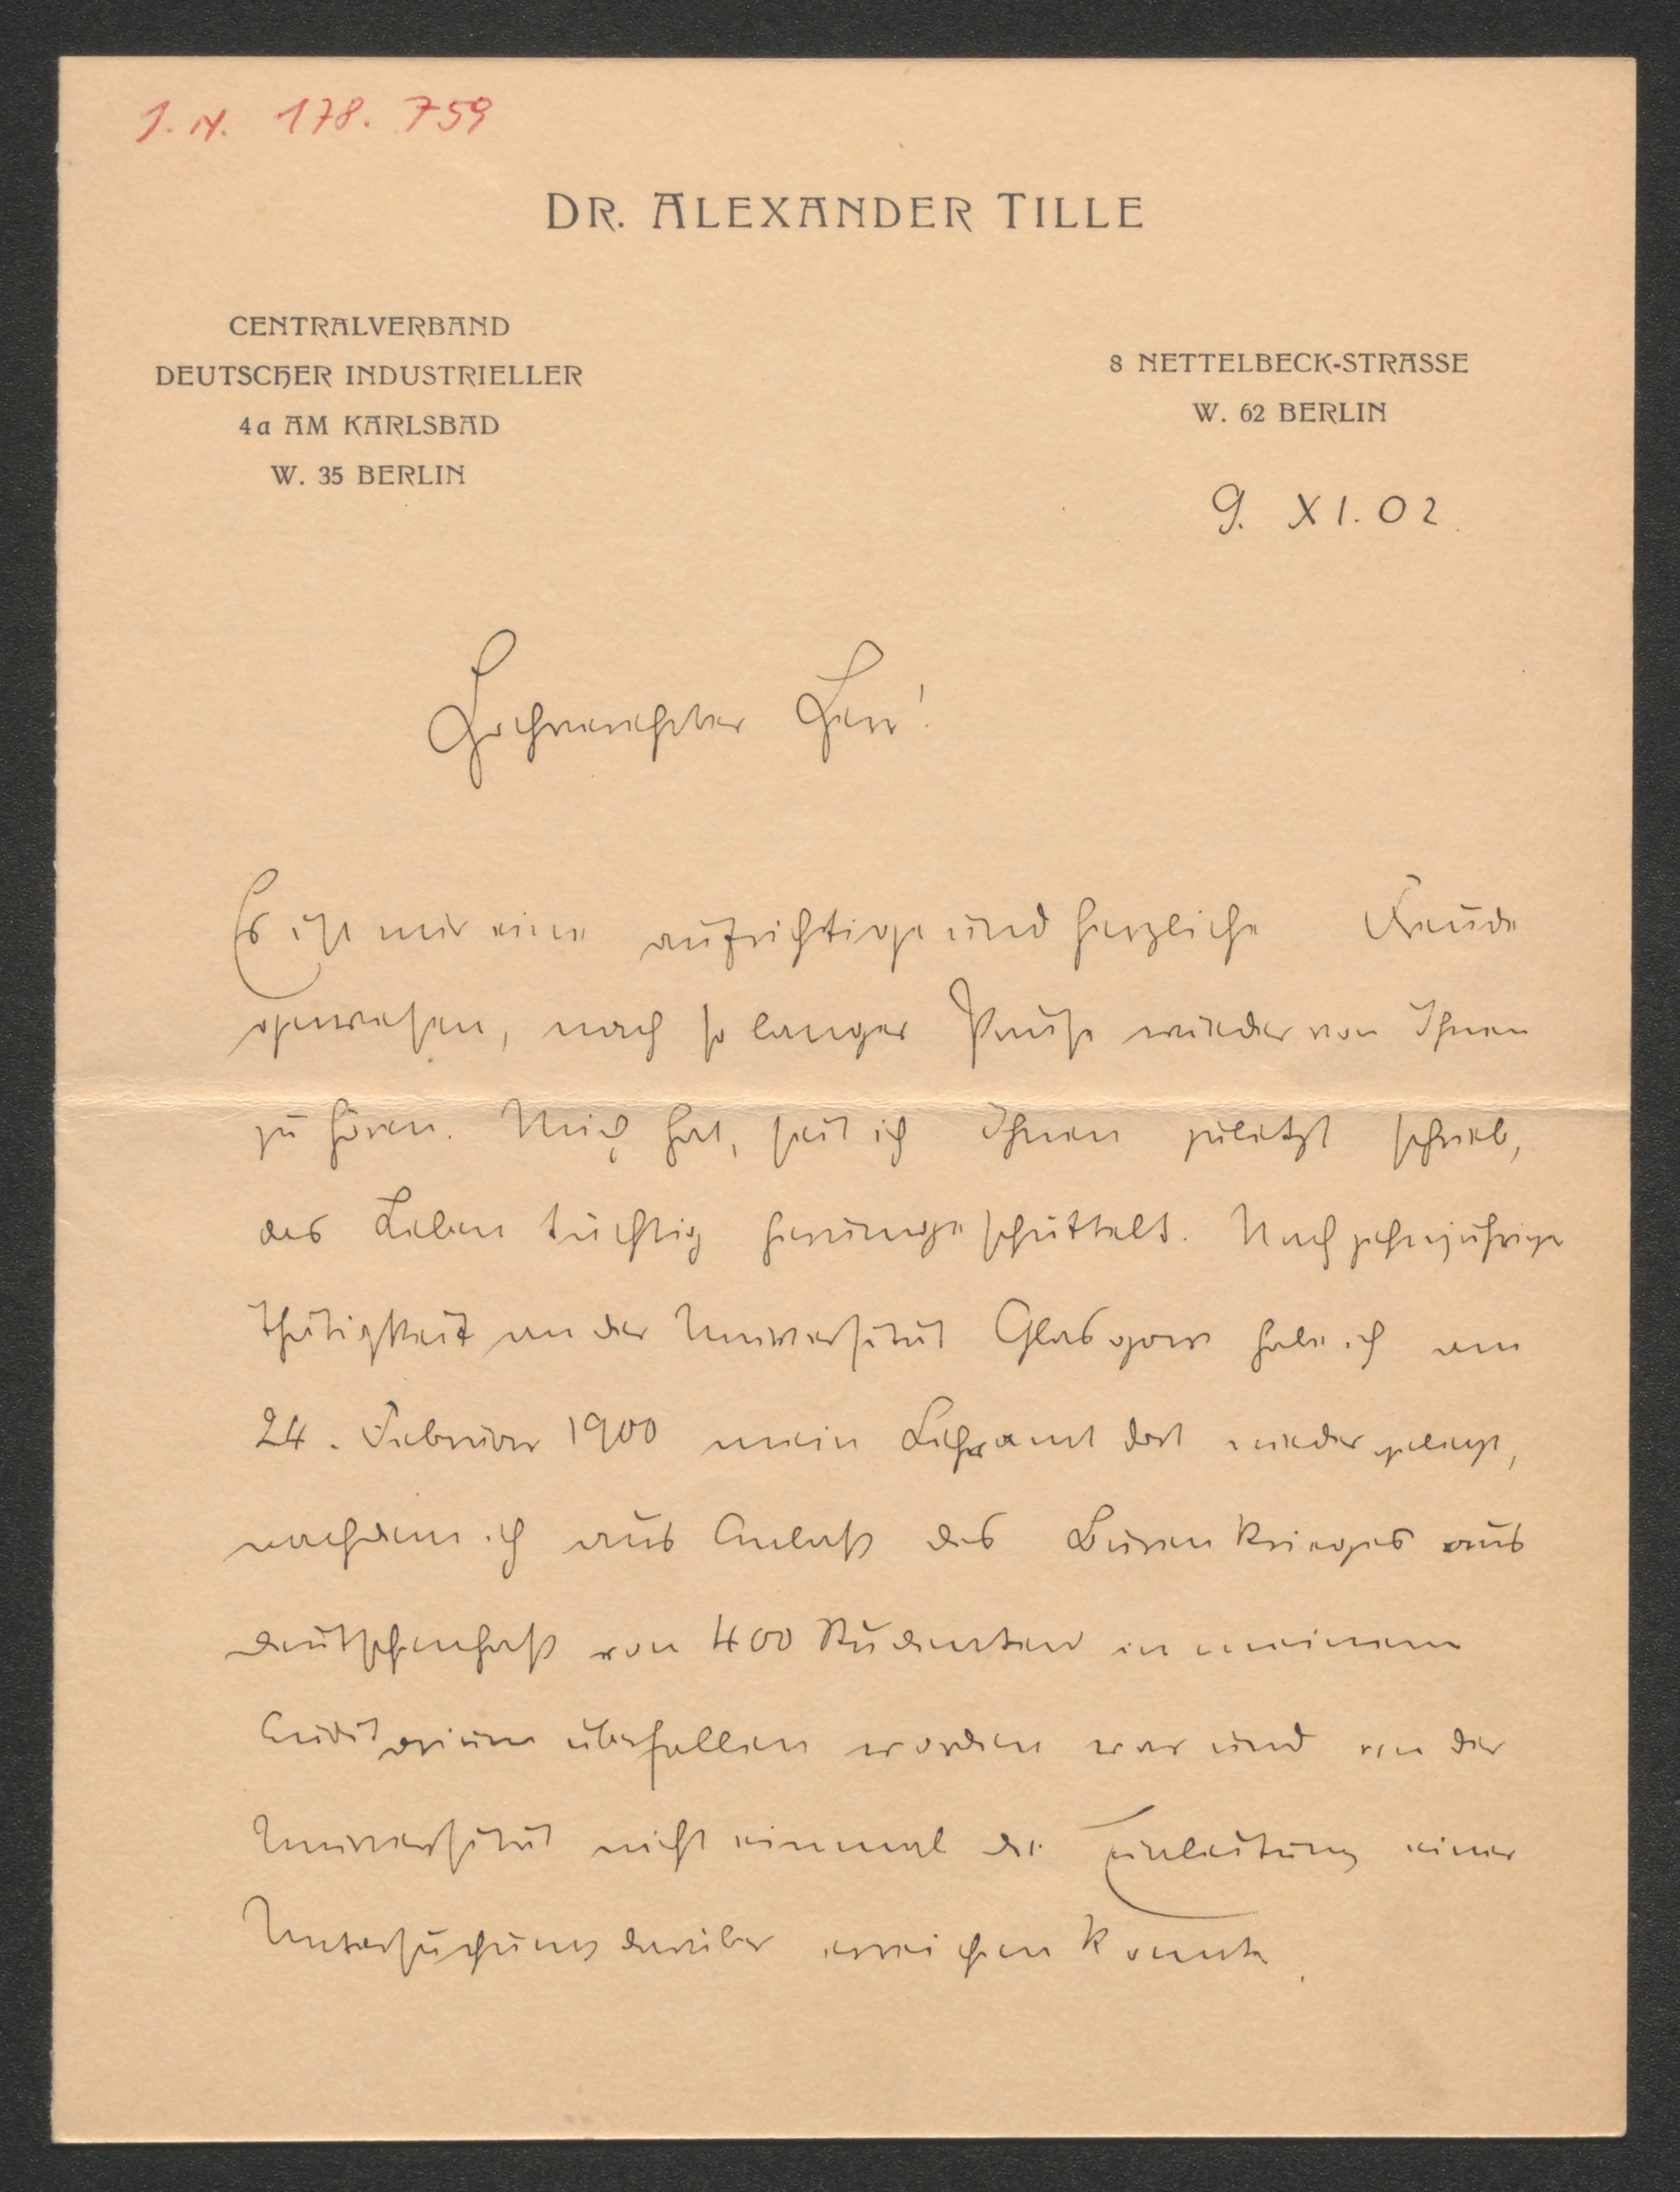 J. N. 178.759
DR. ALEXANDER TILLE
CENTRALVERBAND
DEUTSCHER INDUSTRIELLER
4a AM KARLSBAD
W. 35 BERLIN
8 NETTELBECK-STRASSE
W. 62 BERLIN
9. XI. 02.
Hochverehrter Herr!
Es ist mir eine aufrichtige und herzliche Freude
gewesen, nach so langer Pause wieder von Ihnen
zu hören. Mich hat, seit ich Ihnen zuletzt schrieb,
das Leben tüchtig herumgeschüttelt. Nach zehnjähriger
Thätigkeit an der Universität Glasgow habe ich am
24. Februar 1900 mein Lehramt dort niedergelegt,
nachdem ich aus Anlaß des Burenkrieges aus
Deutschenhaß von 400 Studenten in meinem
Auditorium überfallen worden war und von der
Universität nicht einmal die Einleitung einer
Untersuchung darüber erreichen konnte.